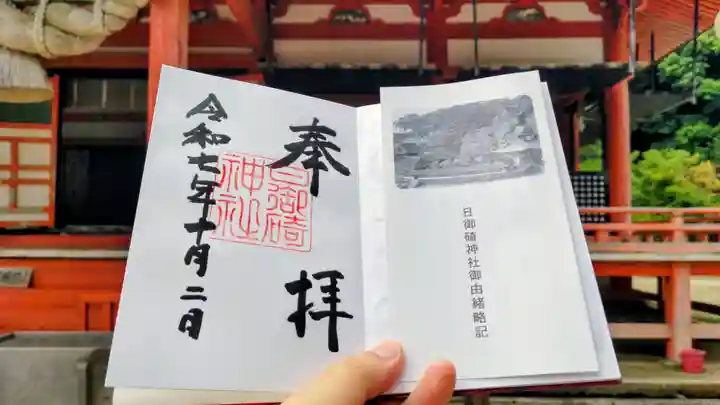 奉拝
日御碕
神社
令和七年十月二日
日御碕神社御由緒略記